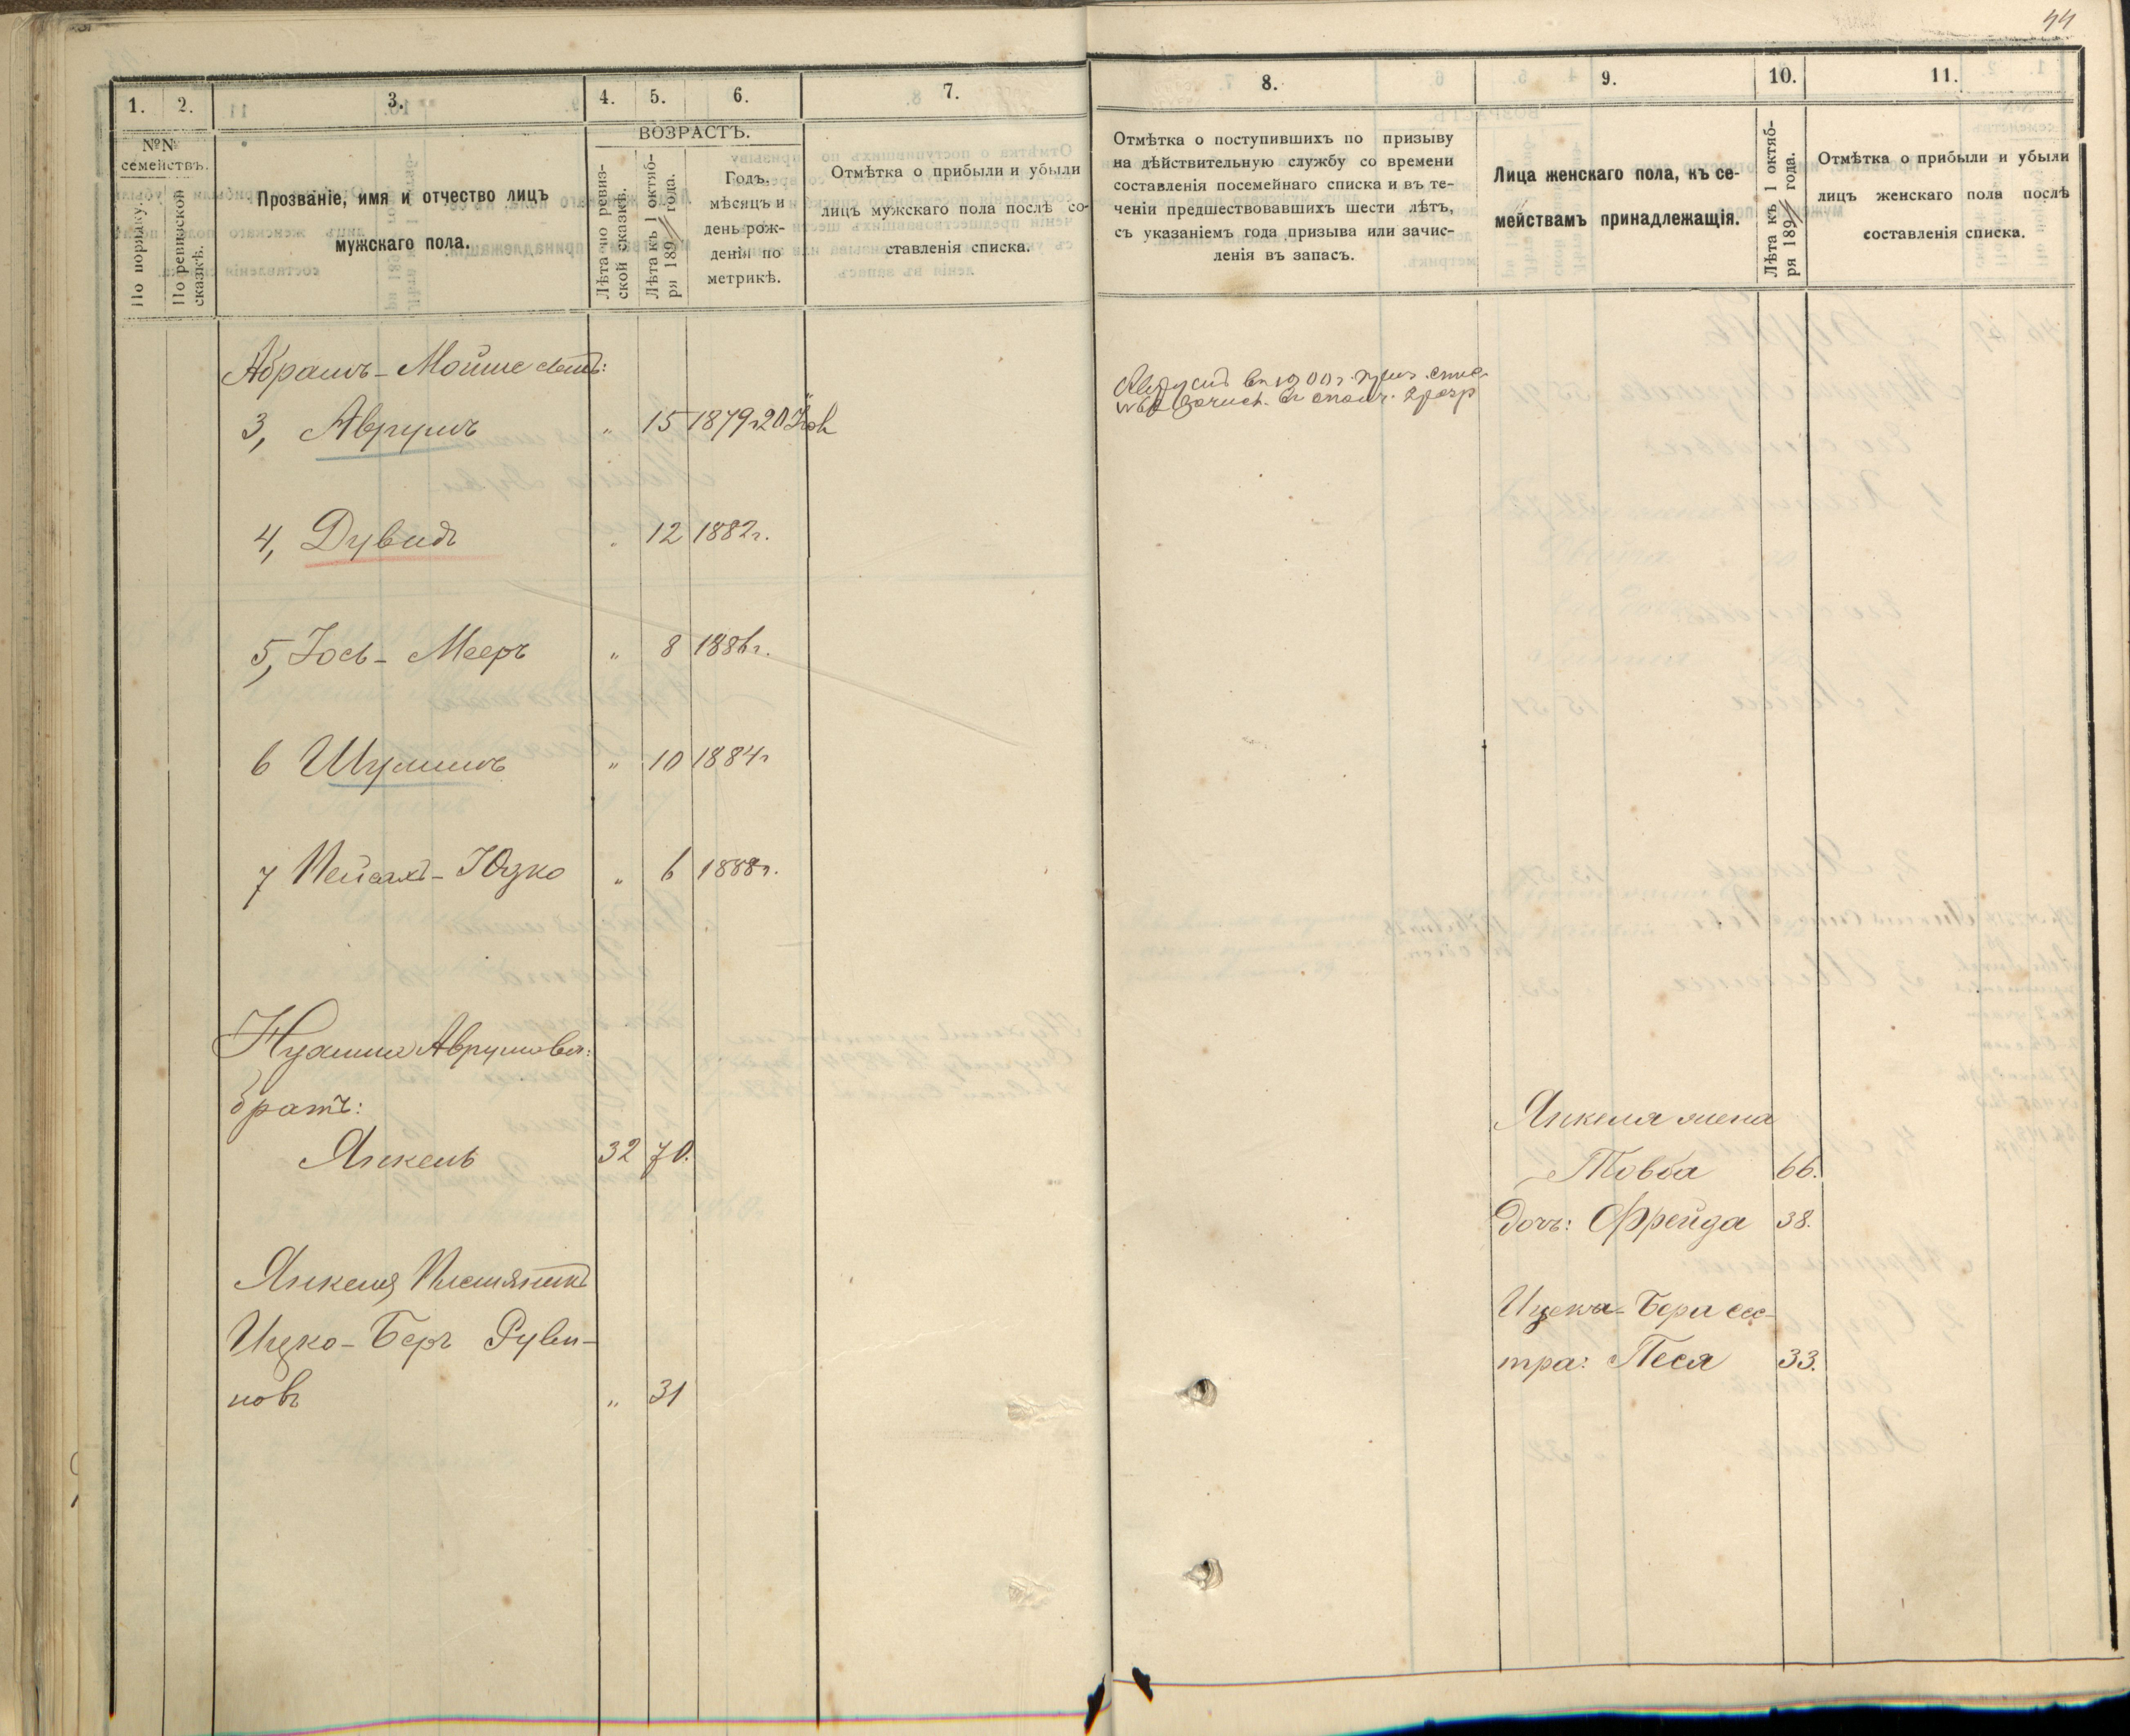 44
1. 2. 3. 4. 5. 6. 7.
№№ семействъ.
По порядку.
По ревизской сказкѣ.
Прозваніе, имя и отчество лицъ
мужскаго пола.
ВОЗРАСТЪ.
Лѣта по ревиз-
ской сказкѣ.
Лѣта къ 1 октяб-
ря 189 года.
Годъ,
мѣсяцъ и
день рож-
денія по
метрикѣ.
Отмѣтка о прибыли и убыли
лицъ мужскаго пола послѣ со-
ставленія списка.
Абрамъ-Мойше
3, Аврумъ " 15 1879 г. 20
4, Дувидъ " 12 1882 г.
5, Іось-Мееръ " 8 1886 г.
6 Шулимъ " 10 1884 г
7 Пейсахъ-Юзко " 6 1888 г.
Аврумова:
братъ:
Янкель 32 70.
Янкеля Племянникъ
Ицко-Беръ Руви-
новъ " 31
8. 9. 10. 11.
Отмѣтка о поступившихъ по призыву
на дѣйствительную службу со времени
составленія посемейнаго списка и въ те-
ченіи предшествовавшихъ шести лѣтъ,
съ указаніемъ года призыва или зачис-
ленія въ запасъ.
Лица женскаго пола, къ се-
мействамъ принадлежащія.
Лѣта къ 1 октяб-
ря 189 года.
Отмѣтка о прибыли и убыли
лицъ женскаго пола послѣ
составленія списка.
въ 1900 г.
2 разр
Янкеля жена
Товба 66.
дочь: Фрейда 38.
Ицека-Бера сес-
тра: Песя 33.